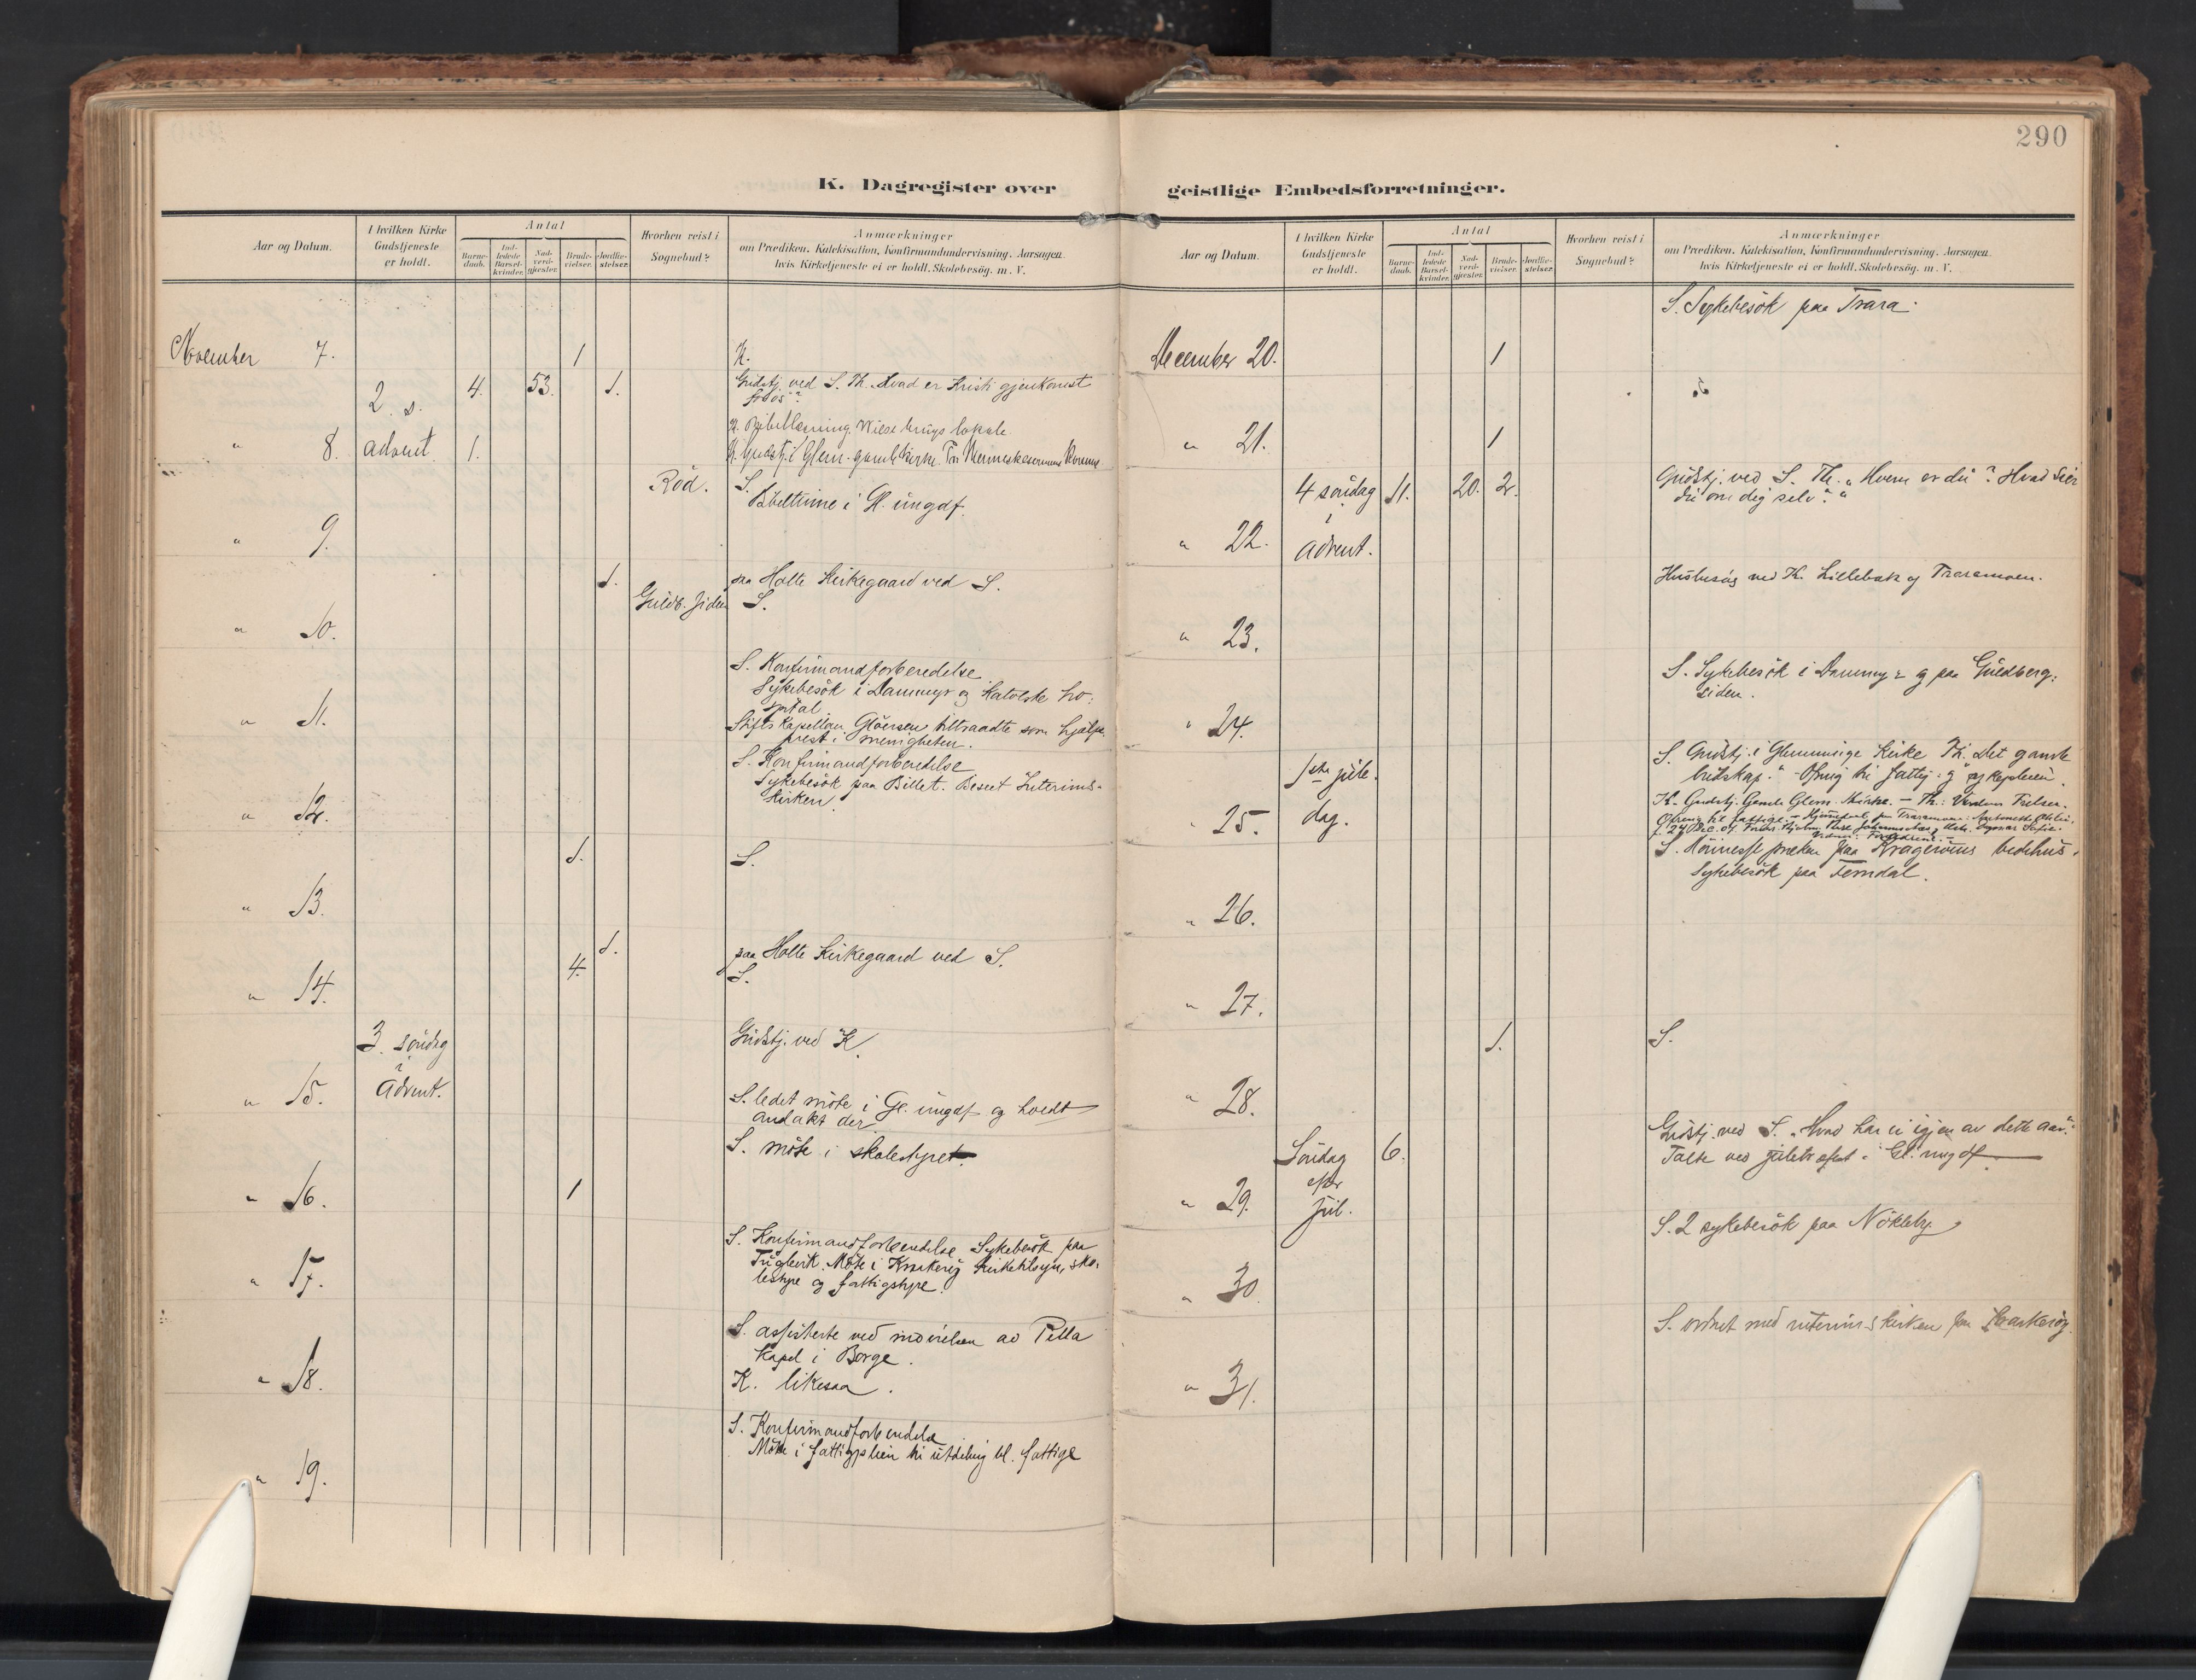 290
K. Dagregister over
Aar og Datum.
I hvilken Kirke Gudstjeneste er holdt.
Antal
Barne-daab.
Ind-ledede Barsel-kvinder.
Nad-verd-gjester.
Brude-vielser.
Jordfæ-stelser.
Hvorhen reist i Sognebud?
Anmærkninger
om Prædiken, Katekisation, Konfirmandundervisning, Aarsagen
hvis Kirketjeneste ei er holdt, Skolebesøg, m. V.
November 7. 1 K.
2 s. 4. 53. 1. Gudstj. ved S. Th. Hvad er Kristi gjenkomst
for os?
K. Bibellæsning
" 8. advent. 1. K. Gudstj. i Glem. gamle kirke.
Rød. S.
Bibeltime i Gl. ungdf.
" 9.
1. paa Holte Kirkegaard ved S.
Guldb. siden S.
" 10.
S. Konfirmandforberedelse
Sykebesök i Dammyr og Katolske ho-
spital
" 11. Stiftskapellan Glöersen tiltraadte som hjælpe-
prest i menigheten.
S. Konfirmandforberedelse
Sykebesök paa Billet. Beseet Interims-
kirken.
" 12.
1. S.
" 13.
1. paa Holte Kirkegaard ved S.
4. S.
" 14.
3. söndag Gudstj. ved K.
i
" 15. Advent. S. ledet möte i Gl. ungdf og holdt
andakt der
S. möte i skolestyret.
" 16. 1
S. Konfirmandforberedelse. Sykebesök paa
Teglverk. Möte i Kraakeröy kirketilsyn, sko-
" 17. lestyre og fattigstyre.
S. assisterte ved indvielsen av Pella
Kapel i Borge.
" 18. K. likesaa.
S. Konfirmandforberedelse
Möte i fattigpleien til utdeling til fattige
" 19.
geistlige Embedsforretninger.
Aar og Datum.
I hvilken Kirke Gudstjeneste er holdt.
Antal
Barne-daab.
Ind-ledede Barsel-kvinder.
Nad-verd-gjester.
Brude-vielser.
Jordfæ-stelser.
Hvorhen reist i Sognebud?
Anmærkninger
om Prædiken, Katekisation, Konfirmandundervisning, Aarsagen
hvis Kirketjeneste ei er holdt, Skolebesøg, m. V.
S. Sykebesök paa Trara.
December 20. 1
S.
" 21. 1
4 söndag 11. 20. 2. Gudstj. ved S. Th. "Hvem er du? Hvad sier
du om dig selv?"
i
" 22. Advent.
Husbesøg ved K. Lillebæk og Traramoen.
" 23.
S. Sykebesök i Dammyr og paa Guldberg-
siden.
" 24.
S. Gudstj. i Glemminge Kirke Th. Det gamle
1ste jule- budskap." Ofring til fattig- og sykepleien.
K. Gudstj. Gamle Glem. Kirke. – Th.: Verdens Frelser.
" 25. dag. Ofring til fattige.
S. paa Kragerøens bedehus.
Sykebesök paa Ferndal.
" 26.
" 27.
1. S.
" 28.
Gudstj. ved S. "Hvad har vi igjen av dette aar?"
Söndag 6. Talte ved juletræfest i Gl. ungdf.
efter
" 29. Jul.
S. 2 sykebesök paa Nökleby
" 30.
S. ordnet med interimskirken paa Kraakeröy.
" 31.